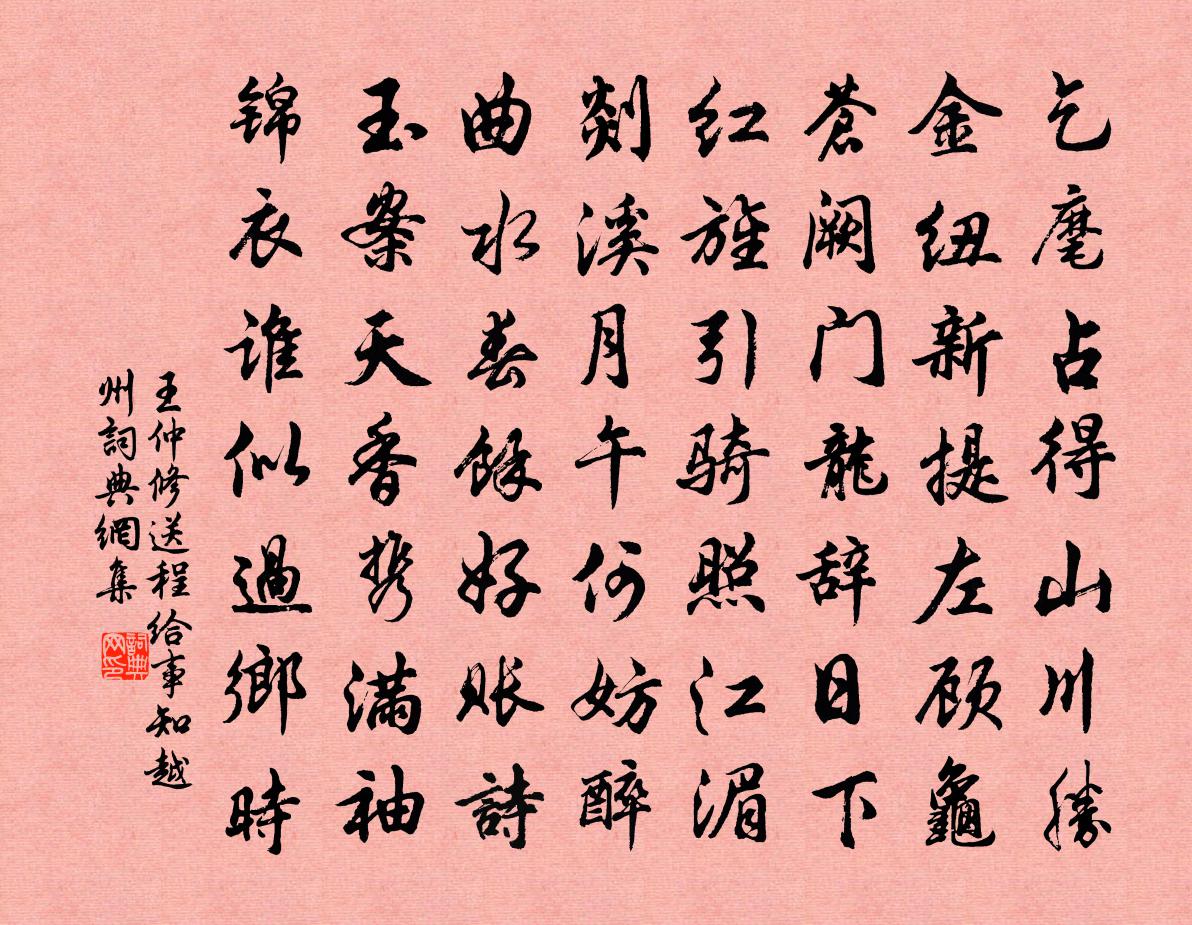 乞麾占得山川勝
金纽新提左顾龜
蒼阙门龍辞日下
红旌引骑照江湄
剡溪月午何妨醉
曲水春餘好账詩
玉案天香携满袖
锦衣谁似過鄉時
王仲修送程给事知越
州詞典網集
詞典网印